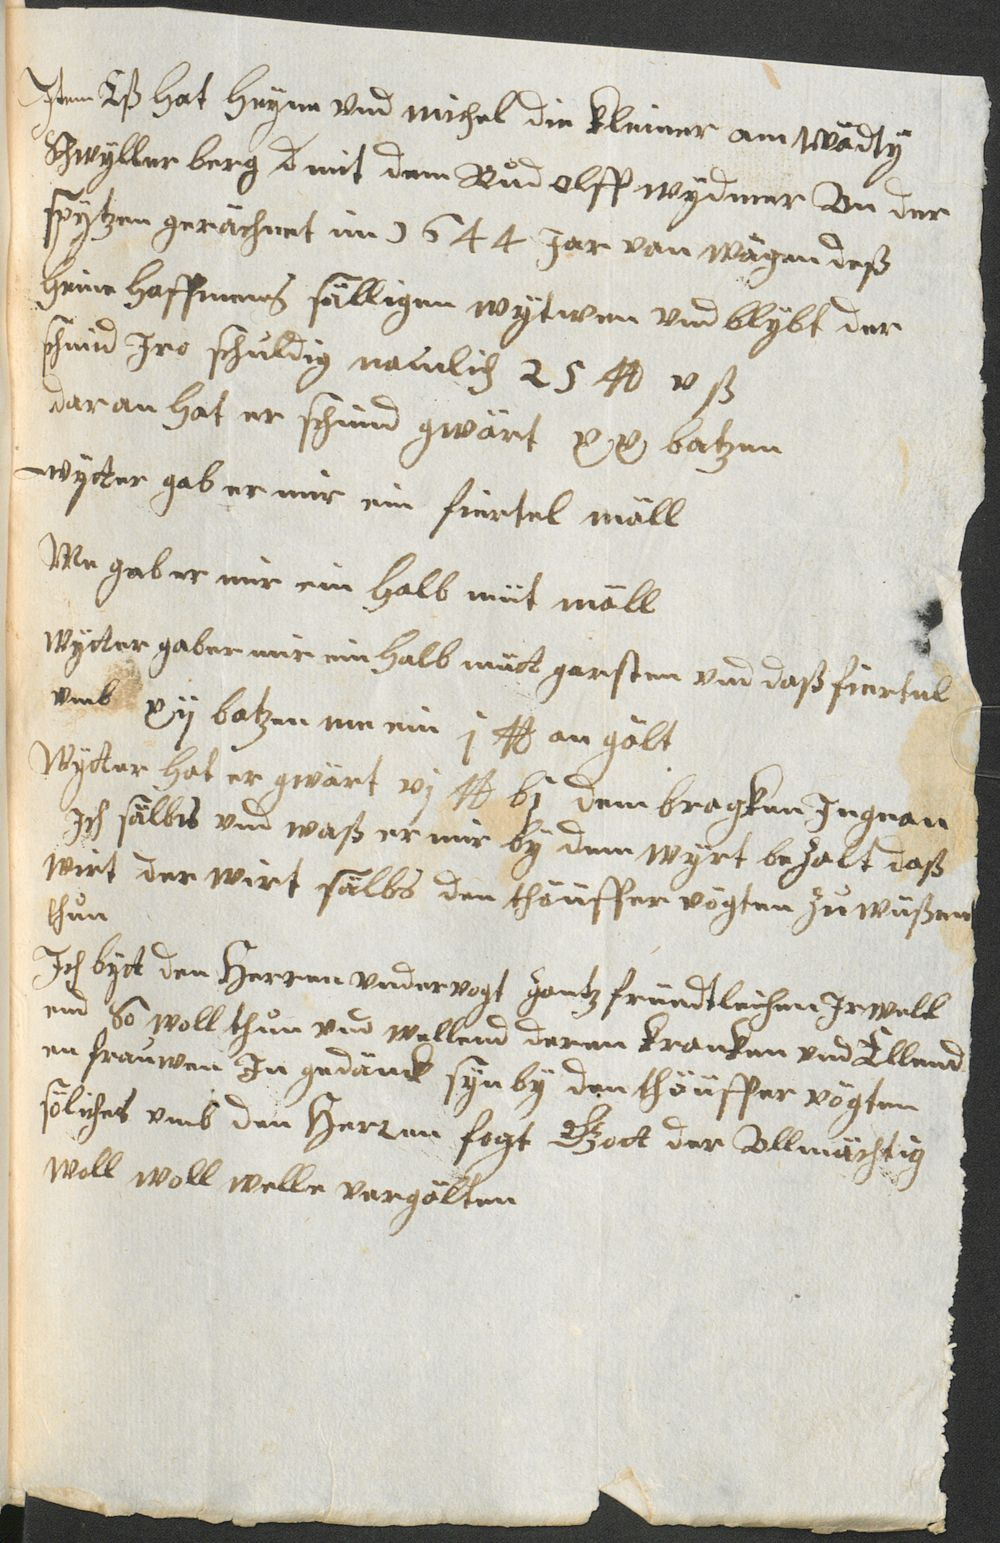 Item Eß hat heyne vnd michel die kleiner am wädty
schwyller berg d mit dem Růdolff wydmer An der
spytzen gerächnet im 1644 Jar von wägen deß
heine hoffmans sälligen wytwen vnd blybt der
schmid Iro schuldig namlich 25 ℔ v ß
daran hat er schmid gwärt xx batzen
wytter gab er mir ein fiertel mäll
Me gab er mir ein halb müt mäll
wytter gab er mir ein halb mütt gersten vnd daß fiertel
vmb xij batzen me ein j ℔ an gält
Wytter hat er gwärt vj ℔ bj dem Ingnan
Ich sälbs vnd waß er mir by dem wyrt bezalt daß
wirt der wirt sälbs den thöüffer vögten zu wüßen
thůn
Ich bytt den Herren vndervogt gantz fründtlichen Ir well
end so woll thůn vnd wellend deren kranken vnd Ellend
en frauwen In gedänck syn by den thöüffer vögten
söliches vmb den Herren fogt Gott der Allmächtig
woll woll welle vergälten